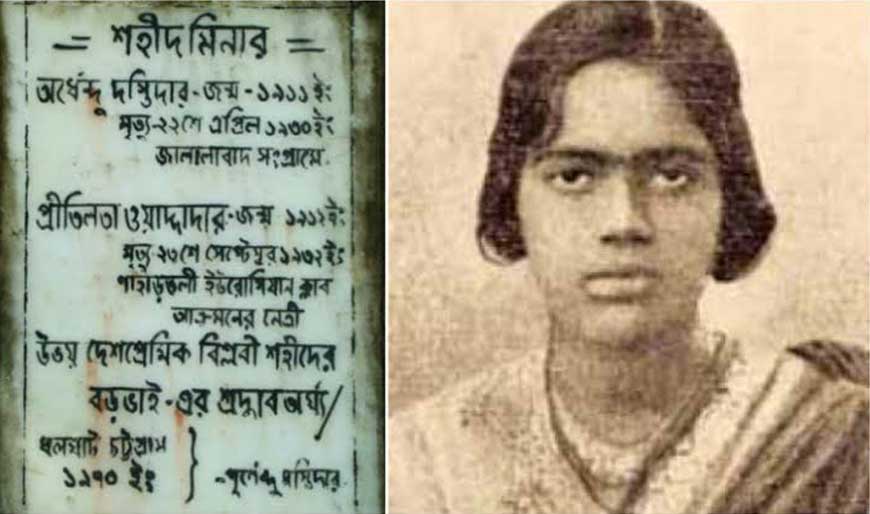 = শহীদ মিনার =
অর্ধেন্দু দস্তিদার - জন্ম - ১৯১১ ইং
মৃত্যু - ২২শে এপ্রিল ১৯৩০ ইং
জালালাবাদ সংগ্রামে.
প্রীতিলতা ওয়াদ্দাদার - জন্ম ১৯১২ ইং
মৃত্যু ২৩শে সেপ্টেম্বর ১৯৩২ ইং
পাহাড়তলী ইউরোপিয়ান ক্লাব
আক্রমনের নেত্রী
উভয় দেশপ্রেমিক বিপ্লবী শহীদের
বড়ভাই - এর শ্রদ্ধার অর্ঘ্য /
ধলঘাট চট্টগ্রাম
১৯৭০ ইং
- পূর্ণেন্দু দস্তিদার.